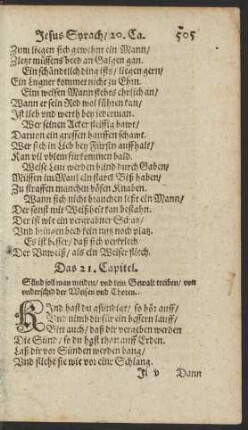 Jesus Syrach / 20. Ca. 505
Zum liegen sich gewehnt ein Mann /
Zletzt müssens beed an Galgen gan.
Ein schändtlich ding ists / liegen gern /
Ein Lugner kommet nicht zu Ehrn.
Eim weisen Mann stehts ehrlich an /
Wann er sein Red wol führen kan /
Ist lieb und werth bey jederman.
Wer seinen Acker fleissig bawt /
Darvon ein grossen hauffen schawt.
Wer sich in Lieb bey Fürsten auffhalt /
Kan vil vblem fürkommen bald.
Weise Leut werden blind durch Gaben /
Müssen im Maul ein starck Biß haben /
Zu straffen manchen bösen Knaben.
Wann sich nicht brauchen leßt ein Mann /
Der sonst mit Weißheit kan bestahn.
Der ist wie ein vergrabner Schatz /
Vnd bringen beed kein nutz noch platz.
Es ist besser / daß sich verkriech
Der Vnweiß / als ein Weiser sich.
Das 21. Capitel.
Sünd soll man meiden / und kein Gewalt treiben / von
underschid der Weisen und Thoren.
KInd hast du gsündiget / so hör auff /
Vnd nimb dir für ein bessern lauff /
Bitt auch / daß dir vergeben werden
Die Sünd / so du hast thon auff Erden.
Laß dir vor Sünden werden bang /
Vnd fliehe sie wie vor ein: Schlang.
Ji v Dann